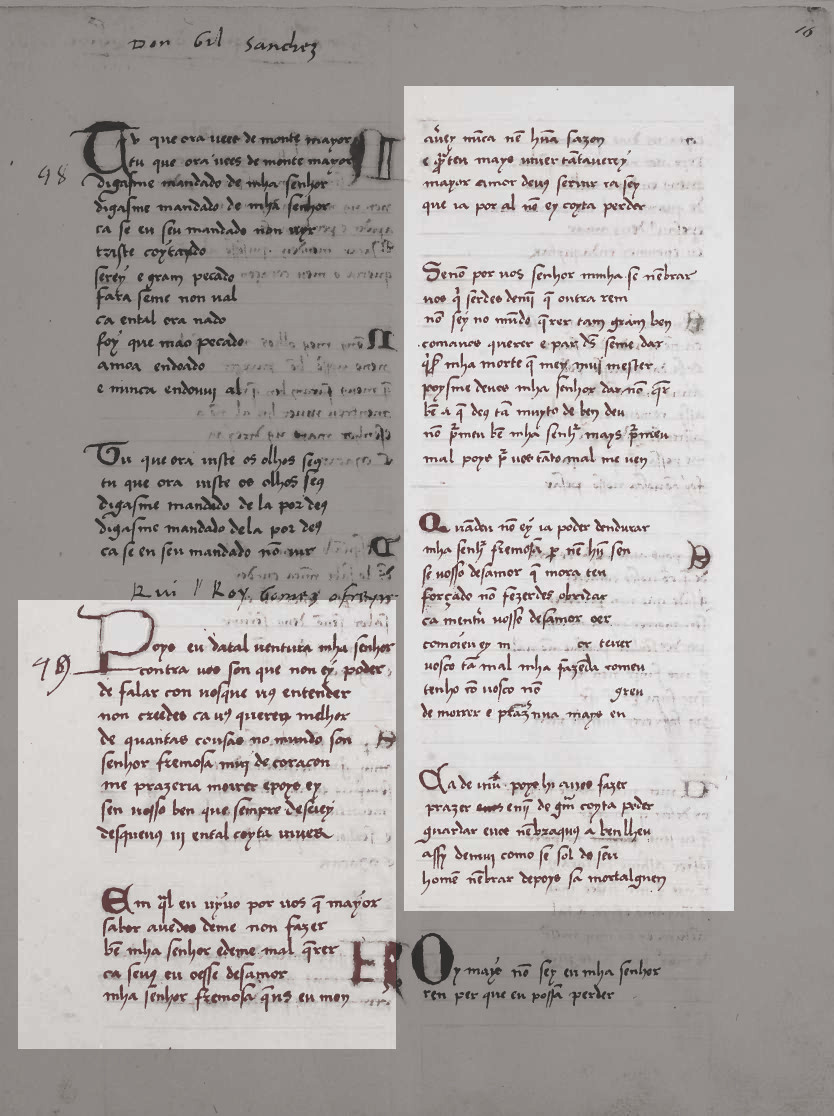 Don Gil Sanchez
16
Tu que ora vees de monte mayor
tu que ora vees de monte mayor
98
digasme mandado de mha senhor
digasme mandado de mha senhor
ca se eu seu mandado non
triste coytando
serey e gram pecado
fara seme non val
ca ental ora nado
foy que mao pecado
amoa endoado
e nunca endouui al
Tu que ora viste os olhos seus
tu que ora viste os olhos seus
digasme mandado de la por deus
digasme mandado dela por deus
ca se eu seu mandado nō vir
Rui Roy Gomez o freyre
Poys eu datal ventura mha senhor
99
contra uos son que non ey poder
de falar con uosque uus entender
non creedes ca uus quereo melhor
de quantas cousas no mundo son
senhor fremosa mui de coracon
me prazeria morrer epoys ey
sen uosso ben que sempre deseiey
desqueuus ui ental coyta uiuerei
Em q̄l eu uyuo por uos q̄ mayor
sabor auedes deme non fazer
bē mha senhor edeme mal q̄rer
ca seuy eu oesse desamor
mha senhor fremosa eu moy
nūca nē hūa sazon
e mays uiuer
mayor amor deuy seruir ca sey
que ia por al nē ey coyta perder
Senō por uos senhor mmha se nēbrar
uos q̄ serdes q̄ outra rem
nō sey no mūdo q̄rer tam gram ben
comauos querer e par ds̄ seme dar
mha morte q̄ mey mui mester
poysme deuos mha senhor dar nō q̄r
bē a q̄ deus tā muyto de ben deu
nō mha senhr̄ mays
mal poys p̄ uos tāto mal me uen
Q uādeu nō ey ia poder dendurar
mha senhr̄ fremosa nē hū sen
se uosso desamor q̄ mora ten
forçado nō fezerdes obridar
ca uosso desamor
ey m er teuer
uosco tā mal mha fazēda comeu
tenho cō uosco nō greu
de morrer e mays eu
Ca de poys hi fazer
prazer de coyta
guardar
assy demui como se sol do seu
homē nēbrar depoys sa mortalguen
Oy mays nō sey eu mha senhor
ren per que eu possa perder